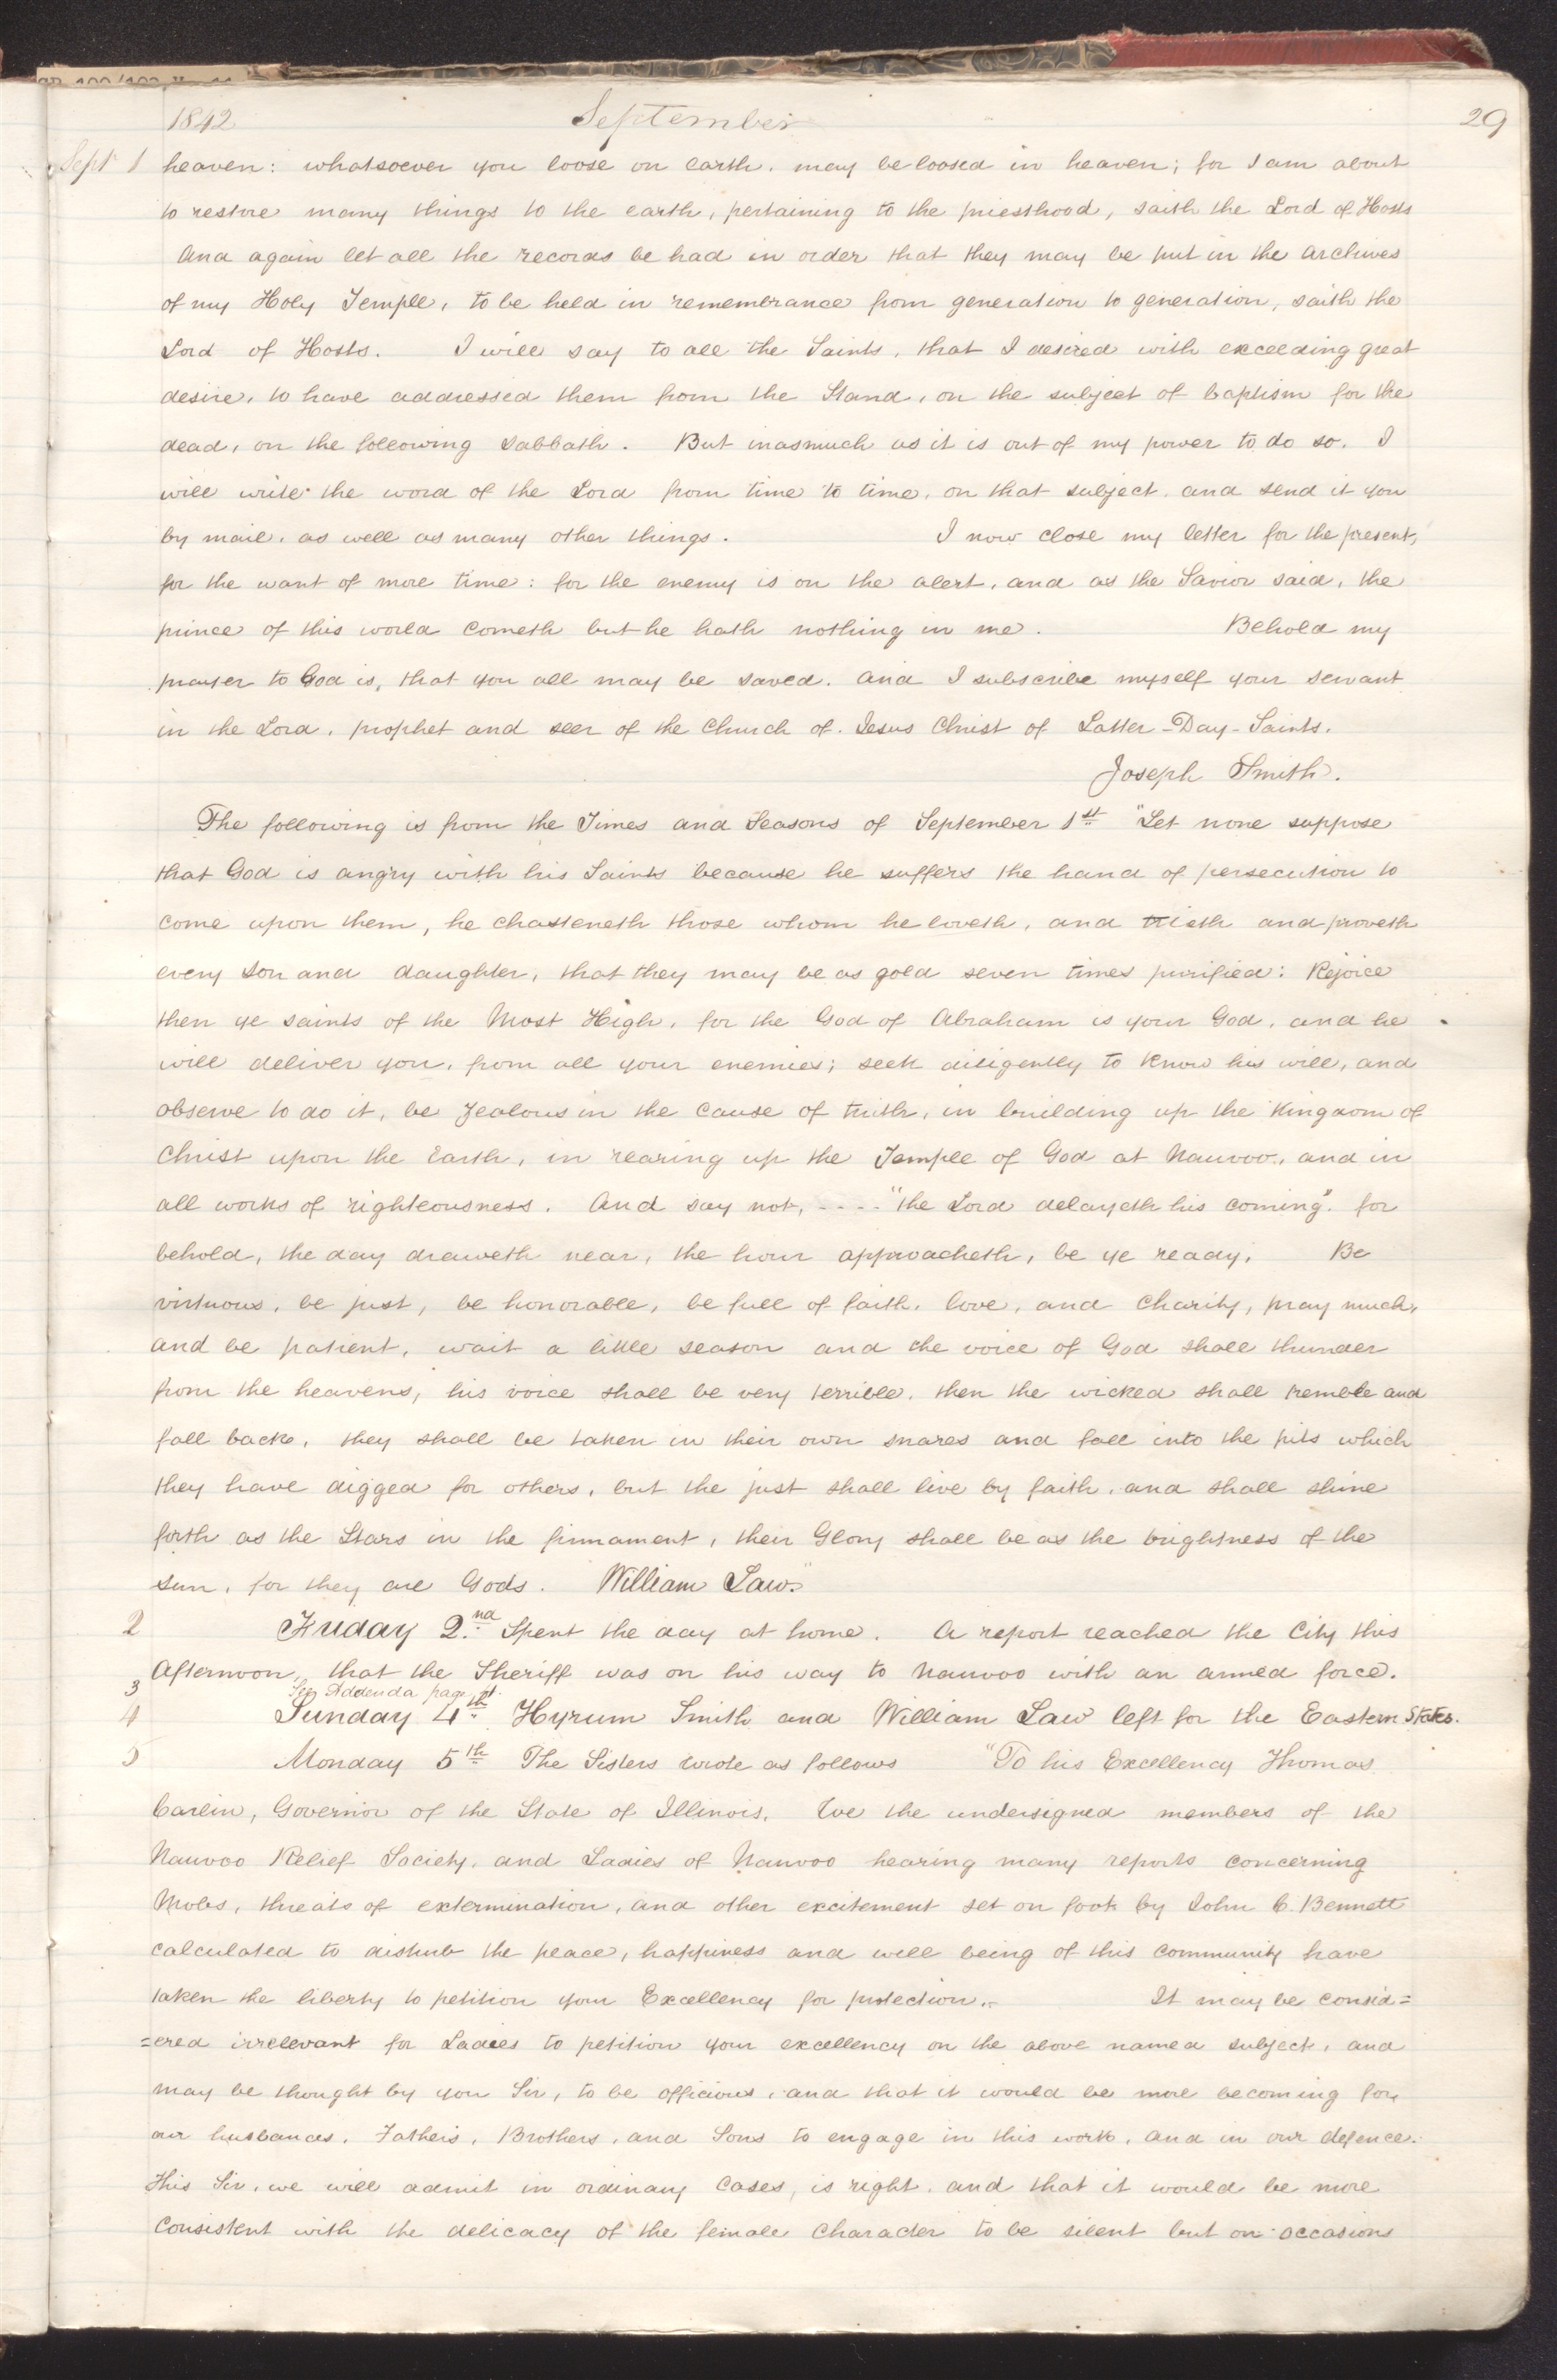 1842 September 29
Sept 1 heaven: whatsoever you loose on earth, may be loosed in heaven; for I am about
to restore many things to the earth, pertaining to the priesthood, saith the Lord of Hosts
And again let all the records be had in order that they may be put in the archives
of my Holy Temple, to be held in remembrance from generation to generation, saith the
Lord of Hosts. I will say to all the Saints, that I desired with exceeding great
desire, to have addressed them from the Stand, on the subject of baptism for the
dead, on the following sabbath. But inasmuch as it is out of my power to do so. I
will write the word of the Lord from time to time, on that subject, and send it you
by mail, as well as many other things. I now close my letter for the present,
for the want of more time: for the enemy is on the alert, and as the Savior said, the
prince of this world cometh but he hath nothing in me. Behold my
prayer to God is, that you all may be saved. And I subscribe myself your servant
in the Lord, prophet and seer of the Church of Jesus Christ of Latter-Day-Saints.
Joseph Smith.
The following is from the Times and Seasons of September 1st "Let none suppose
that God is angry with his Saints because he suffers the hand of persecution to
come upon them, he chasteneth those whom he loveth, and trieth and proveth
every son and daughter, that they may be as gold seven times purified: Rejoice
then ye saints of the Most High, for the God of Abraham is your God, and he
will deliver you, from all your enemies; seek diligently to know his will, and
observe to do it, be zealous in the cause of truth, in building up the Kingdom of
Christ upon the Earth, in rearing up the Temple of God at Nauvoo, and in
all works of righteousness. And say not, .... "the Lord delayeth his coming". for
behold, the day draweth near, the hour approacheth, be ye ready, Be
virtuous, be just, be honorable, be full of faith, love, and charity, pray much,
and be patient, wait a little season and the voice of God shall thunder
from the heavens, his voice shall be very terrible, then the wicked shall tremble and
fall back, they shall be taken in their own snares and fall into the pits which
they have digged for others, but the just shall live by faith, and shall shine
forth as the Stars in the firmament, their Glory shall be as the brightness of the
sun, for they are Gods. William Law."
2 Friday 2nd Spent the day at home. A report reached the City this
Afternoon, that the Sheriff was on his way to Nauvoo with an armed force.
3 See Addenda page
4 Sunday 4th Hyrum Smith and William Law left for the Eastern States.
5 Monday 5th The Sisters wrote as follows "To his Excellency Thomas
Carlin, Governor of the State of Illinois. We the undersigned members of the
Nauvoo Relief Society, and Ladies of Nauvoo hearing many reports concerning
Mobs, threats of extermination, and other excitement set on foot by John C. Bennett
calculated to disturb the peace, happiness and well being of this community have
taken the liberty to petition your Excellency for protection.- It may be consid=
=ered irrelevant for Ladies to petition your excellency on the above named subject, and
may be thought by you Sir, to be officious, and that it would be more becoming for
our husbands, Fathers, Brothers, and Sons to engage in this work, and in our defence.
this Sir, we will admit in ordinary cases, is right, and that it would be more
consistent with the delicacy of the female character to be silent but on occasions